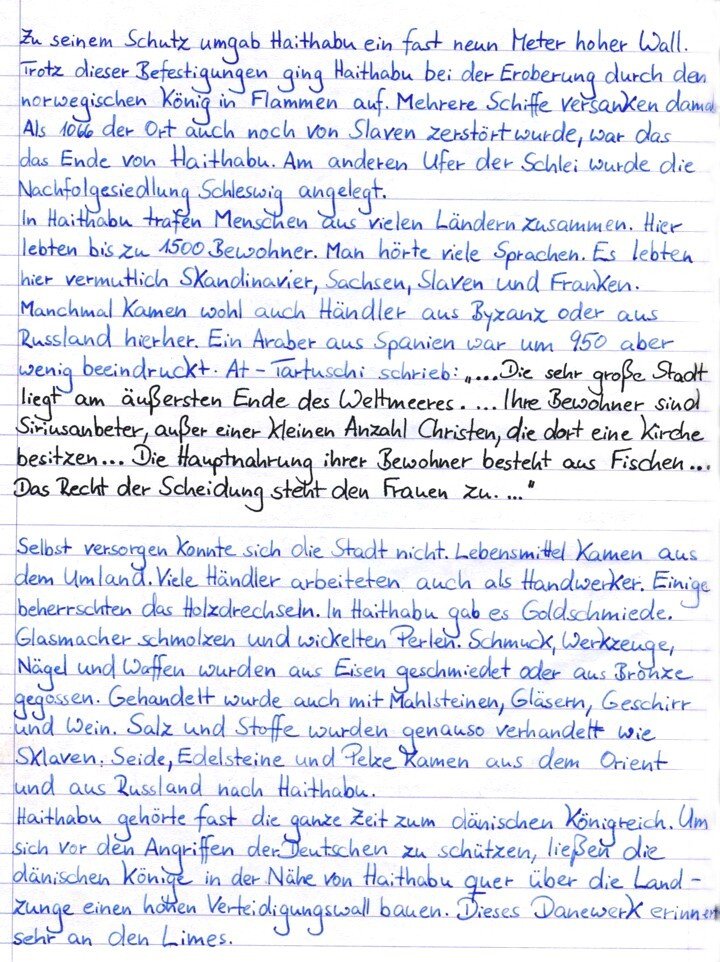 Zu seinem Schutz umgab Haithabu ein fast neun Meter hoher Wall.
Trotz dieser Befestigungen ging Haithabu bei der Eroberung durch den
norwegischen König in Flammen auf. Mehrere Schiffe versanken dama
Als 1066 der Ort auch noch von Slaven zerstört wurde, war das
das Ende von Haithabu. Am anderen Ufer der Schlei wurde die
Nachfolgesiedlung Schleswig angelegt.
In Haithabu trafen Menschen aus vielen Ländern zusammen. Hier
lebten bis zu 1500 Bewohner. Man hörte viele Sprachen. Es lebten
hier vermutlich Skandinavier, Sachsen, Slaven und Franken.
Manchmal kamen wohl auch Händler aus Byzanz oder aus
Russland hierher. Ein Araber aus Spanien war um 950 aber
wenig beeindruckt. At-Tartuschi schrieb: „...Die sehr große Stadt
liegt am äußersten Ende des Weltmeeres. ... Ihre Bewohner sind
Siriusanbeter, außer einer kleinen Anzahl Christen, die dort eine Kirche
besitzen... Die Hauptnahrung ihrer Bewohner besteht aus Fischen...
Das Recht der Scheidung steht den Frauen zu. ..."
Selbst versorgen konnte sich die Stadt nicht. Lebensmittel kamen aus
dem Umland. Viele Händler arbeiteten auch als Handwerker. Einige
beherrschten das Holzdrechseln. In Haithabu gab es Goldschmiede.
Glasmacher schmolzen und wickelten Perlen. Schmuck, Werkzeuge,
Nägel und Waffen wurden aus Eisen geschmiedet oder aus Bronze
gegossen. Gehandelt wurde auch mit Mahlsteinen, Gläsern, Geschirr
und Wein. Salz und Stoffe wurden genauso verhandelt wie
Sklaven. Seide, Edelsteine und Pelze kamen aus dem Orient
und aus Russland nach Haithabu.
Haithabu gehörte fast die ganze Zeit zum dänischen Königreich. Um
sich vor den Angriffen der Deutschen zu schützen, ließen die
dänischen Könige in der Nähe von Haithabu quer über die Land-
zunge einen hohen Verteidigungswall bauen. Dieses Danewerk erinnert
sehr an den Limes.